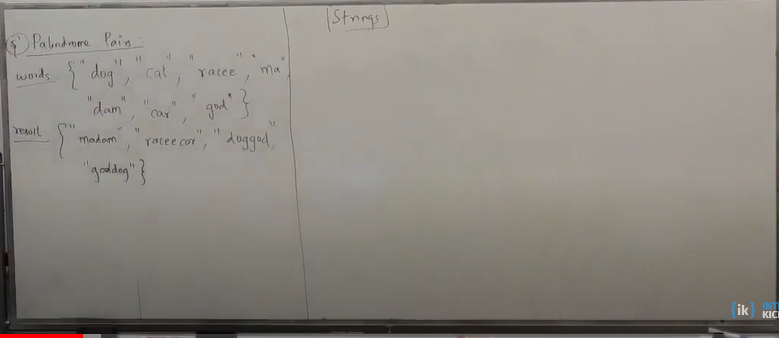 Strings
Palindrome Pairs
words { "dog", "cat", "racee", "ma",
"dam", "car", "god" }
result { "madam", "raceecar", "doggod",
"goddog" }
{ik} INTE
KICK